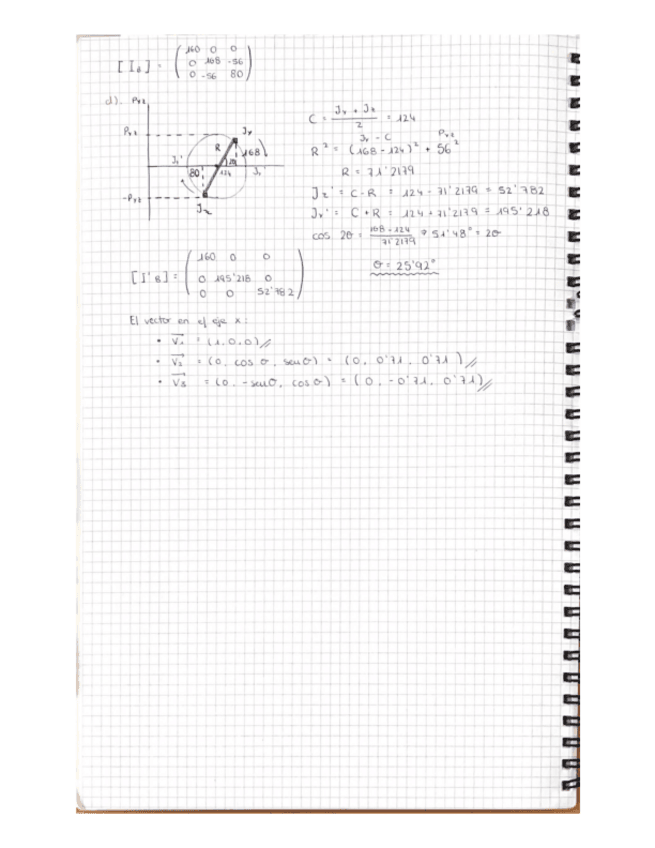 [I_B] = ( 160 0 0
0 168 -56
0 -56 80 )
d). Pyz
Pyz
R Jy
168
Jz' 2θ
80 124 Jy'
-Pyz
Jz
C = (Jy + Jz)/2 = 124
Jy - C Pyz
R² = (168 - 124)² + 56²
R = 71'2179
Jz' = C - R = 124 - 71'2179 = 52'782
Jy' = C + R = 124 + 71'2179 = 195'218
cos 2θ = (168 - 124)/71'2179 → 51'48° = 2θ
θ = 25'92°
[I'_B] = ( 160 0 0
0 195'218 0
0 0 52'782 )
El vector en el eje x:
• V₁ = (1, 0, 0)//
• V₂ = (0, cos θ, senθ) = (0, 0'71, 0'71)//
• V₃ = (0, -senθ, cosθ) = (0, -0'71, 0'71)//